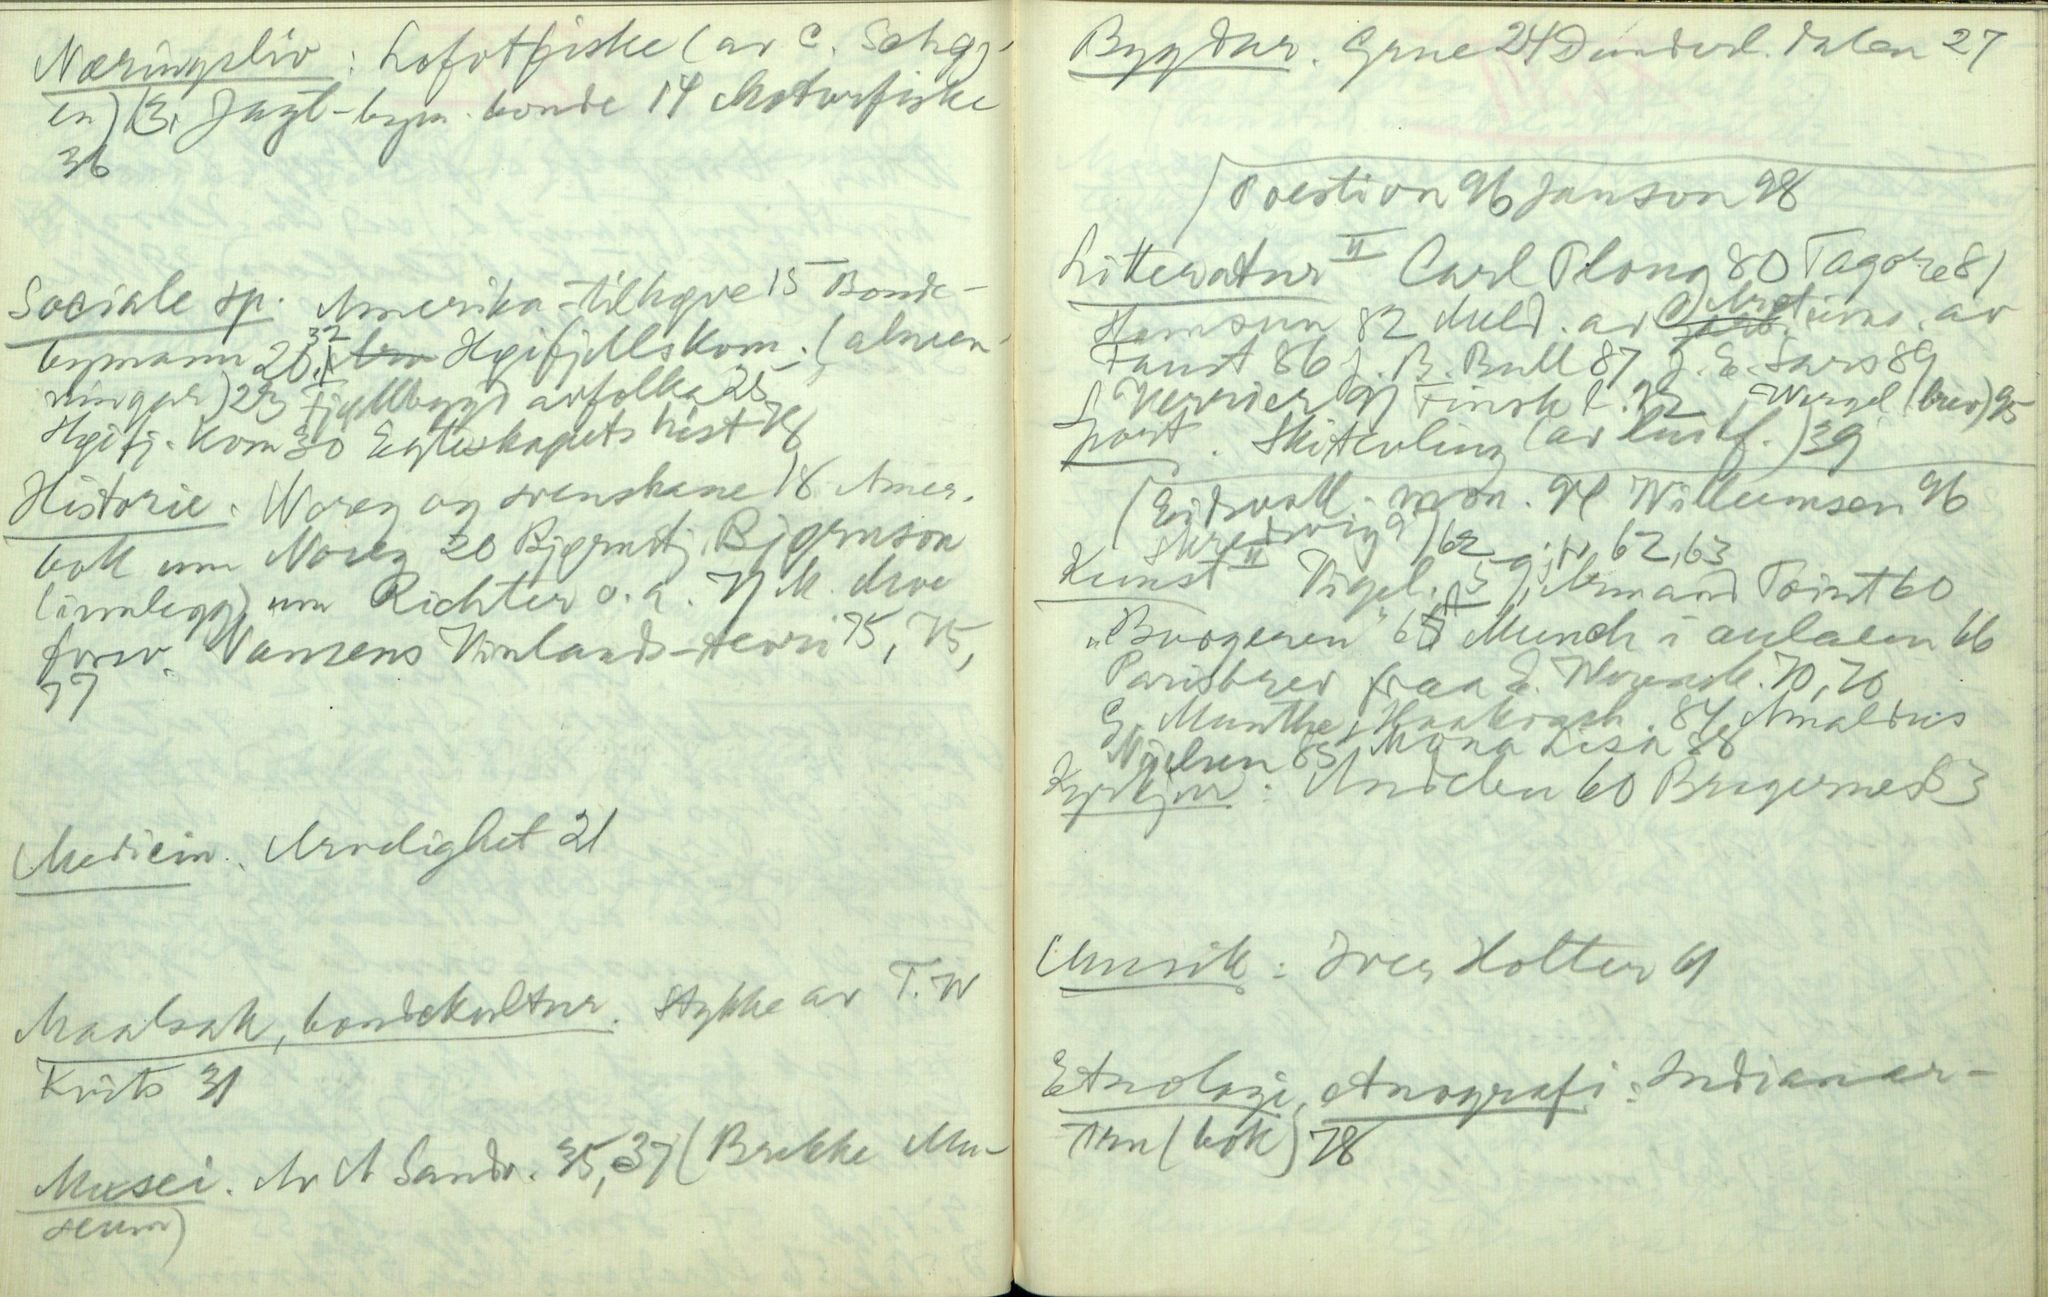 Næringsliv: Lofotfiske (av C. Schøy-
en) 13, Jagt-bym. bonde 14 Motorfiske
36
Sociale sp. Amerika-tilhøve 15 Bonde-
bymann 20, 32 Høifjellskom. (almen-
ningar) 23 Fjellbygd avfolka 25
Høifj. kom 30 Egteskapets hist 78
Historie. Noreg og svenskane 18 Amer.
bok um Noreg 20 Bjørnstj. Bjørnson
(innlegg) um Richter o. a. 71 M. Moe
forsv. Nansens Vinlands-teori 75, 75,
77
Medicin. Arvelighet 21
Maalsak, bondekultur. Stykke av T. W
Krits 31
Musei. Av A Sandv. 35, 37 (Brekke Mu-
seum)
Bygdar. Grue 24 Dunderl. dalen 27
Poestion 96 Janson 98
Litteratur II Carl Ploug 80 Tagore 81
Hamsun 82 Meld. av ums. av
Faust 86 J. B. Bull 87 J. E. Sars 89
Verrier 91 Finsk l. 92 Wergel (brev) 95
Sport. Skiterling (av Huitf.) 39
(Eidsvoll-mon. 94 Willumsen 96
Skredsvig 62 62, 63
Kunst II Vigel. Armand Point 60
"Borgeren" 65 Munch i aulaen 66
Parisbrev fraa D. Werensk. 70, 70
G. Munthe, Haakonsh. 84, Amaldus
Nielsen 85 Mona Lisa 88
Kyrkjur: Undelen 60 Bragernes 83
Musik: Iver Holter 61
Etnologi, etnografi: Indianar-
trn (bok) 78